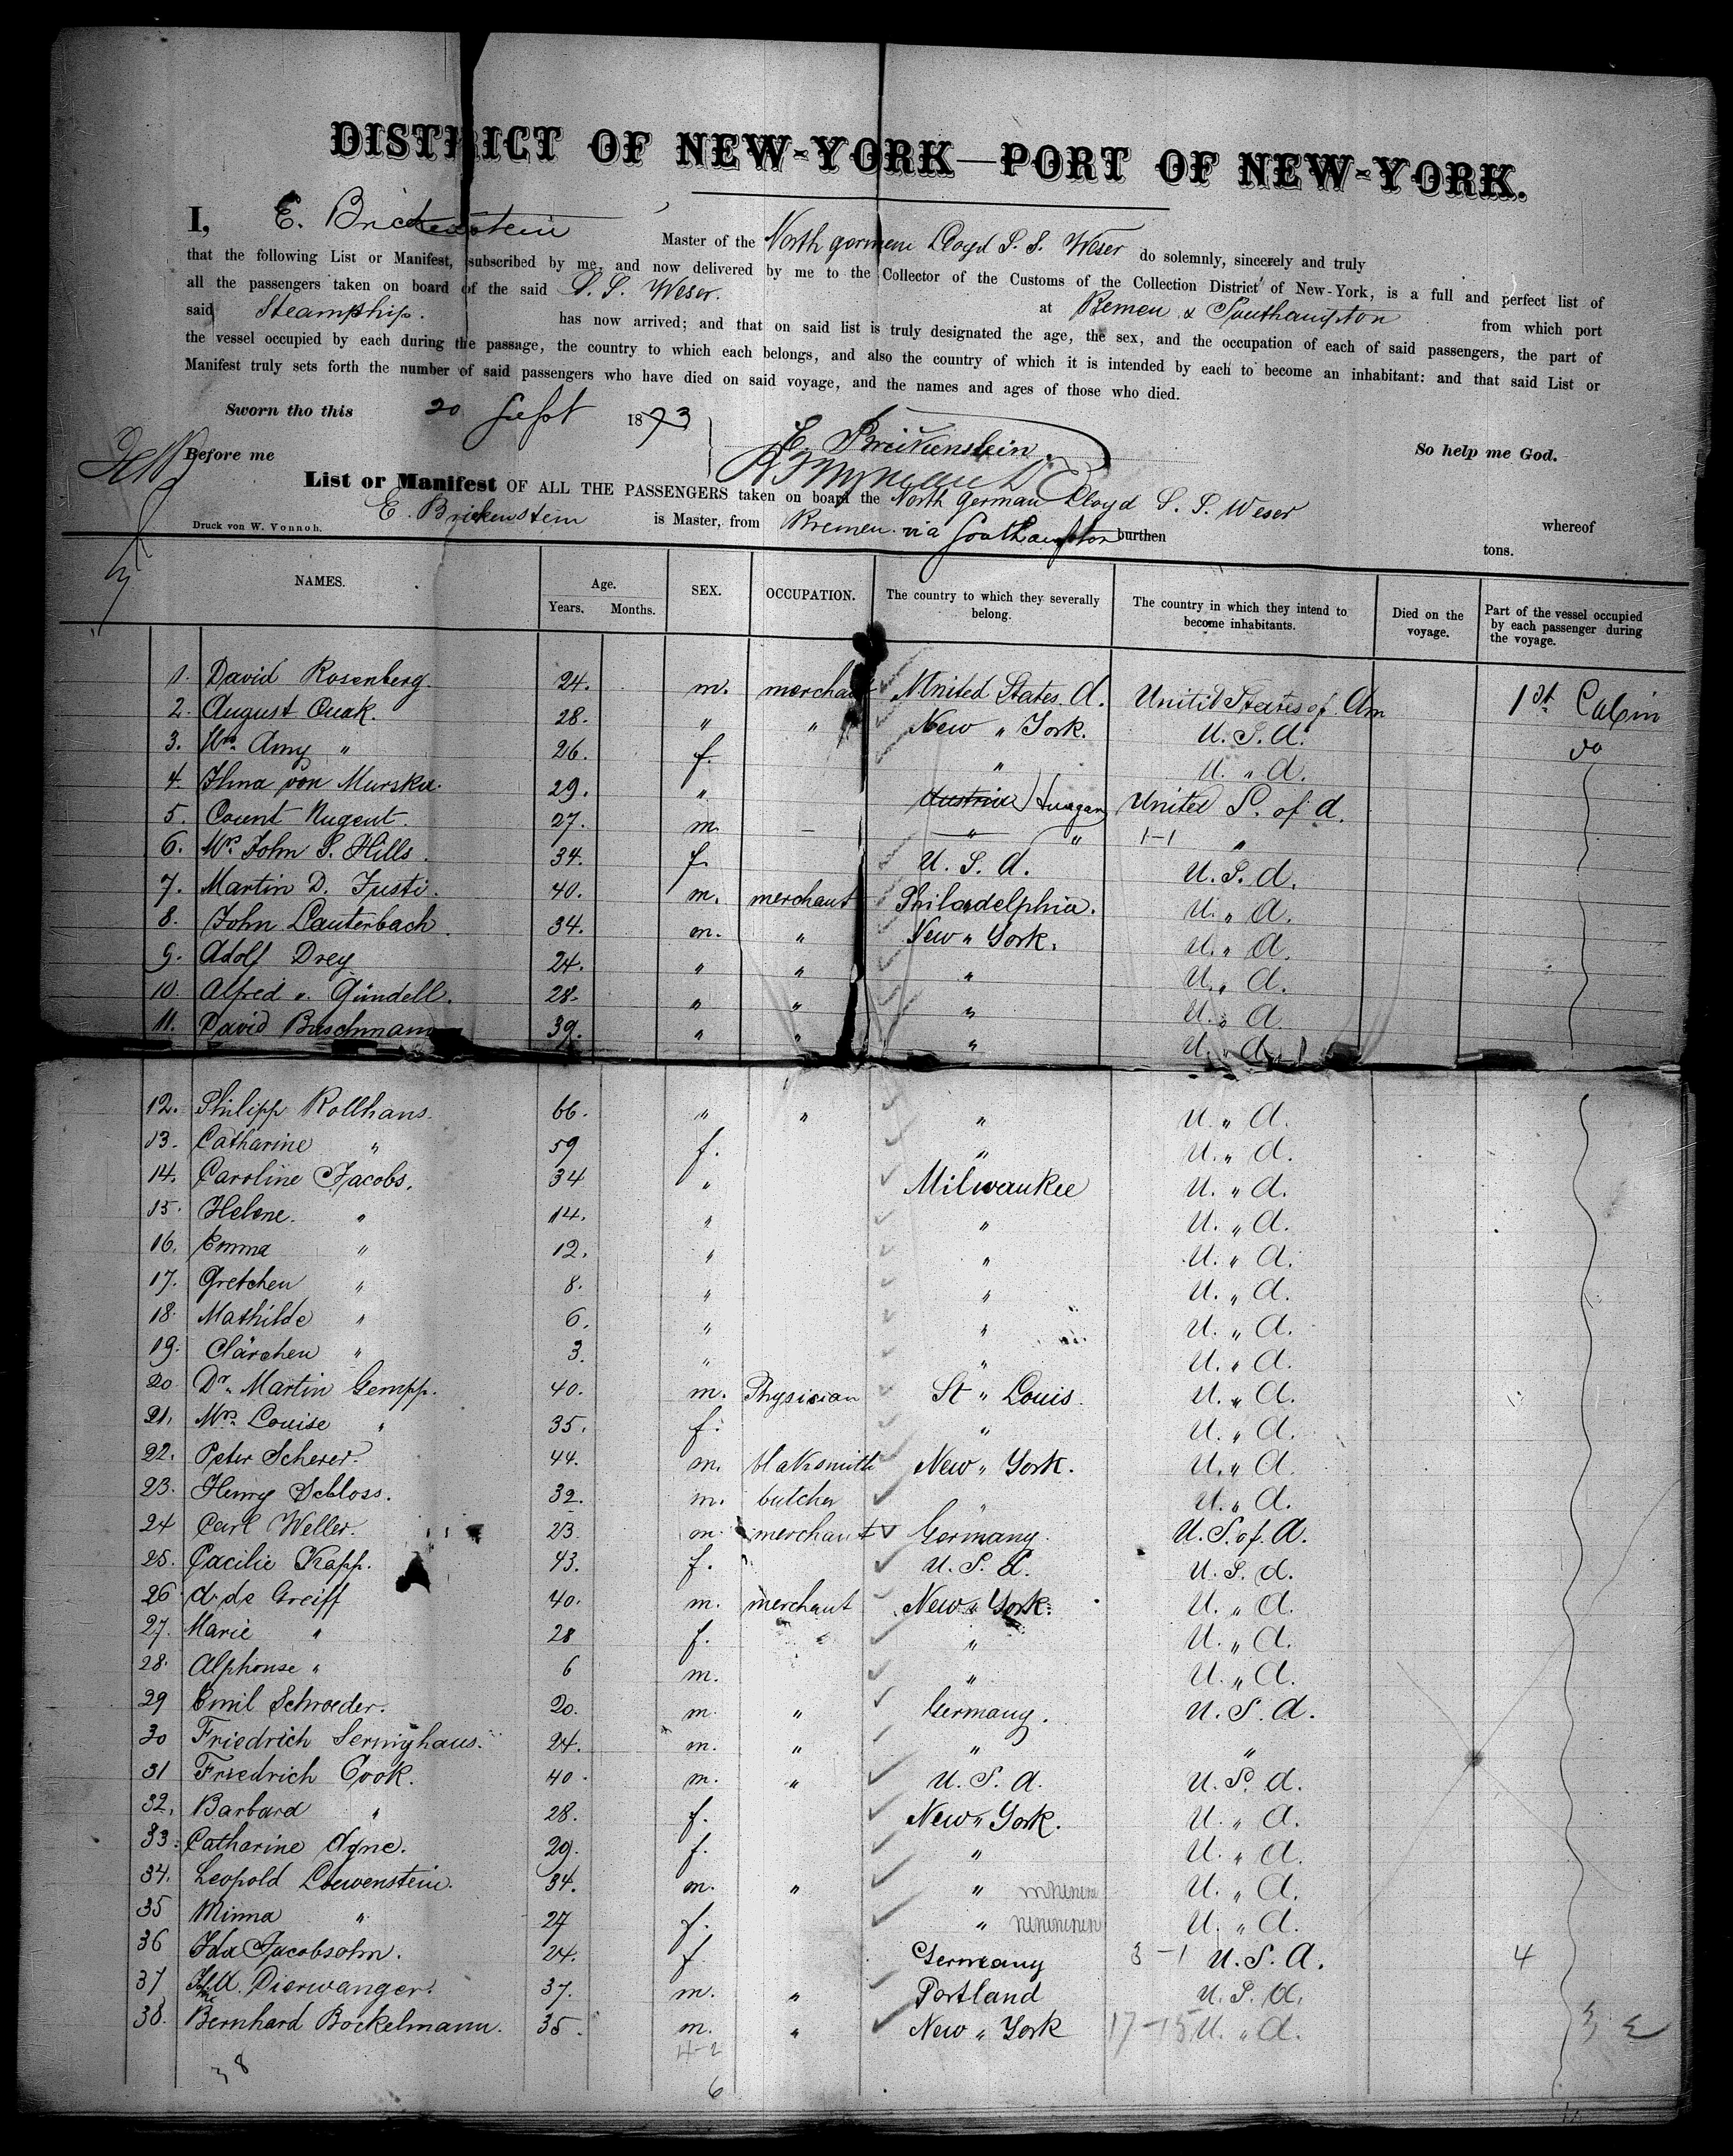 DISTRICT OF NEW-YORK—PORT OF NEW-YORK.
I, E. Brickenstein Master of the North german Lloyd S. S. Weser do solemnly, sincerely and truly
that the following List or Manifest, subscribed by me, and now delivered by me to the Collector of the Customs of the Collection District of New-York, is a full and perfect list of
all the passengers taken on board of the said S. S. Weser. at Bremen & Southampton from which port
said Steamship. has now arrived; and that on said list is truly designated the age, the sex, and the occupation of each of said passengers, the part of
the vessel occupied by each during the passage, the country to which each belongs, and also the country of which it is intended by each to become an inhabitant: and that said List or
Manifest truly sets forth the number of said passengers who have died on said voyage, and the names and ages of those who died.
Sworn tho this 20 Sept 1873
E. Brickenstein. So help me God.
Before me
List or Manifest OF ALL THE PASSENGERS taken on board the North German Lloyd S. S. Weser whereof
E. Brickenstein is Master, from Bremen via Southampton burthen tons.
Druck von W. Vonnoh.
NAMES. Age. Years. Months. SEX. OCCUPATION. The country to which they severally belong. The country in which they intend to become inhabitants. Died on the voyage. Part of the vessel occupied by each passenger during the voyage.
1. David Rosenberg. 24. m. merchant United States A. United States of Am 1st Cabin
2. August Quak. 28. " " New " York. U. S. A. do
3. Mrs. Amy " 26. f. " U. " A.
4. Ilma von Murska. 29. " Austria Hungary United S. of A.
5. Count Nugent. 27. m. — " " 1-1 "
6. Mrs. John S. Hills. 34. f. U. S. A. U. S. A.
7. Martin D. Justi. 40. m. merchant Philadelphia. U. " A.
8. John Lauterbach. 34. m. " New " York. U. " A.
9. Adolf Drey 24. " " " U. " A.
10. Alfred v. Gündell. 28. " " " U. " A.
11. David Buschmann 39. " " " U. " A.
12. Philipp Rollhaus. 66. " " " U. " A.
13. Catharine " 59 f. " U. " A.
14. Caroline Jacobs. 34 " Milwaukee U. " A.
15. Helene. " 14. " " U. " A.
16. Emma " 12. " " U. " A.
17. Gretchen " 8. " " U. " A.
18. Mathilde " 6. " " U. " A.
19. Clärchen " 3. " " U. " A.
20 Dr. Martin Gempp. 40. m. Physician St " Louis. U. " A.
21. Mrs. Louise " 35. f. " U. " A.
22. Peter Scherer. 44. m. blaksmith New " York. U. " A.
23. Henry Schloss. 32. m. butcher " U. " A.
24 Carl Weller. 23. m. merchant Germany. U. S. of A.
25. Cacilie Kapp. 43. f. U. S. A. U. S. A.
26 A. de Greiff 40. m. merchant New " York. U. " A.
27. Marie " 28 f. " U. " A.
28. Alphonse " 6 m. " U. " A.
29 Emil Schroeder. 20. m. " Germany. U. S. A.
30 Friedrich Seringhaus. 24. m. " " "
31 Friedrich Cook. 40. m. " U. S. A. U. S. A.
32. Barbara " 28. f. New " York. U. " A.
33. Catharine Agne. 29. f. " U. " A.
34. Leopold Loewenstein. 34. m. " " U. " A.
35 Minna " 27 f. " U. " A.
36 Ida Jacobsohn. 24. f Germany 3-1 U. S. A. 4
37 Dierwanger. 37. m. " Portland U. S. A.
38. Bernhard Bockelmann. 35. m. " New " York 17-15 U. " A.
38 4-2
6